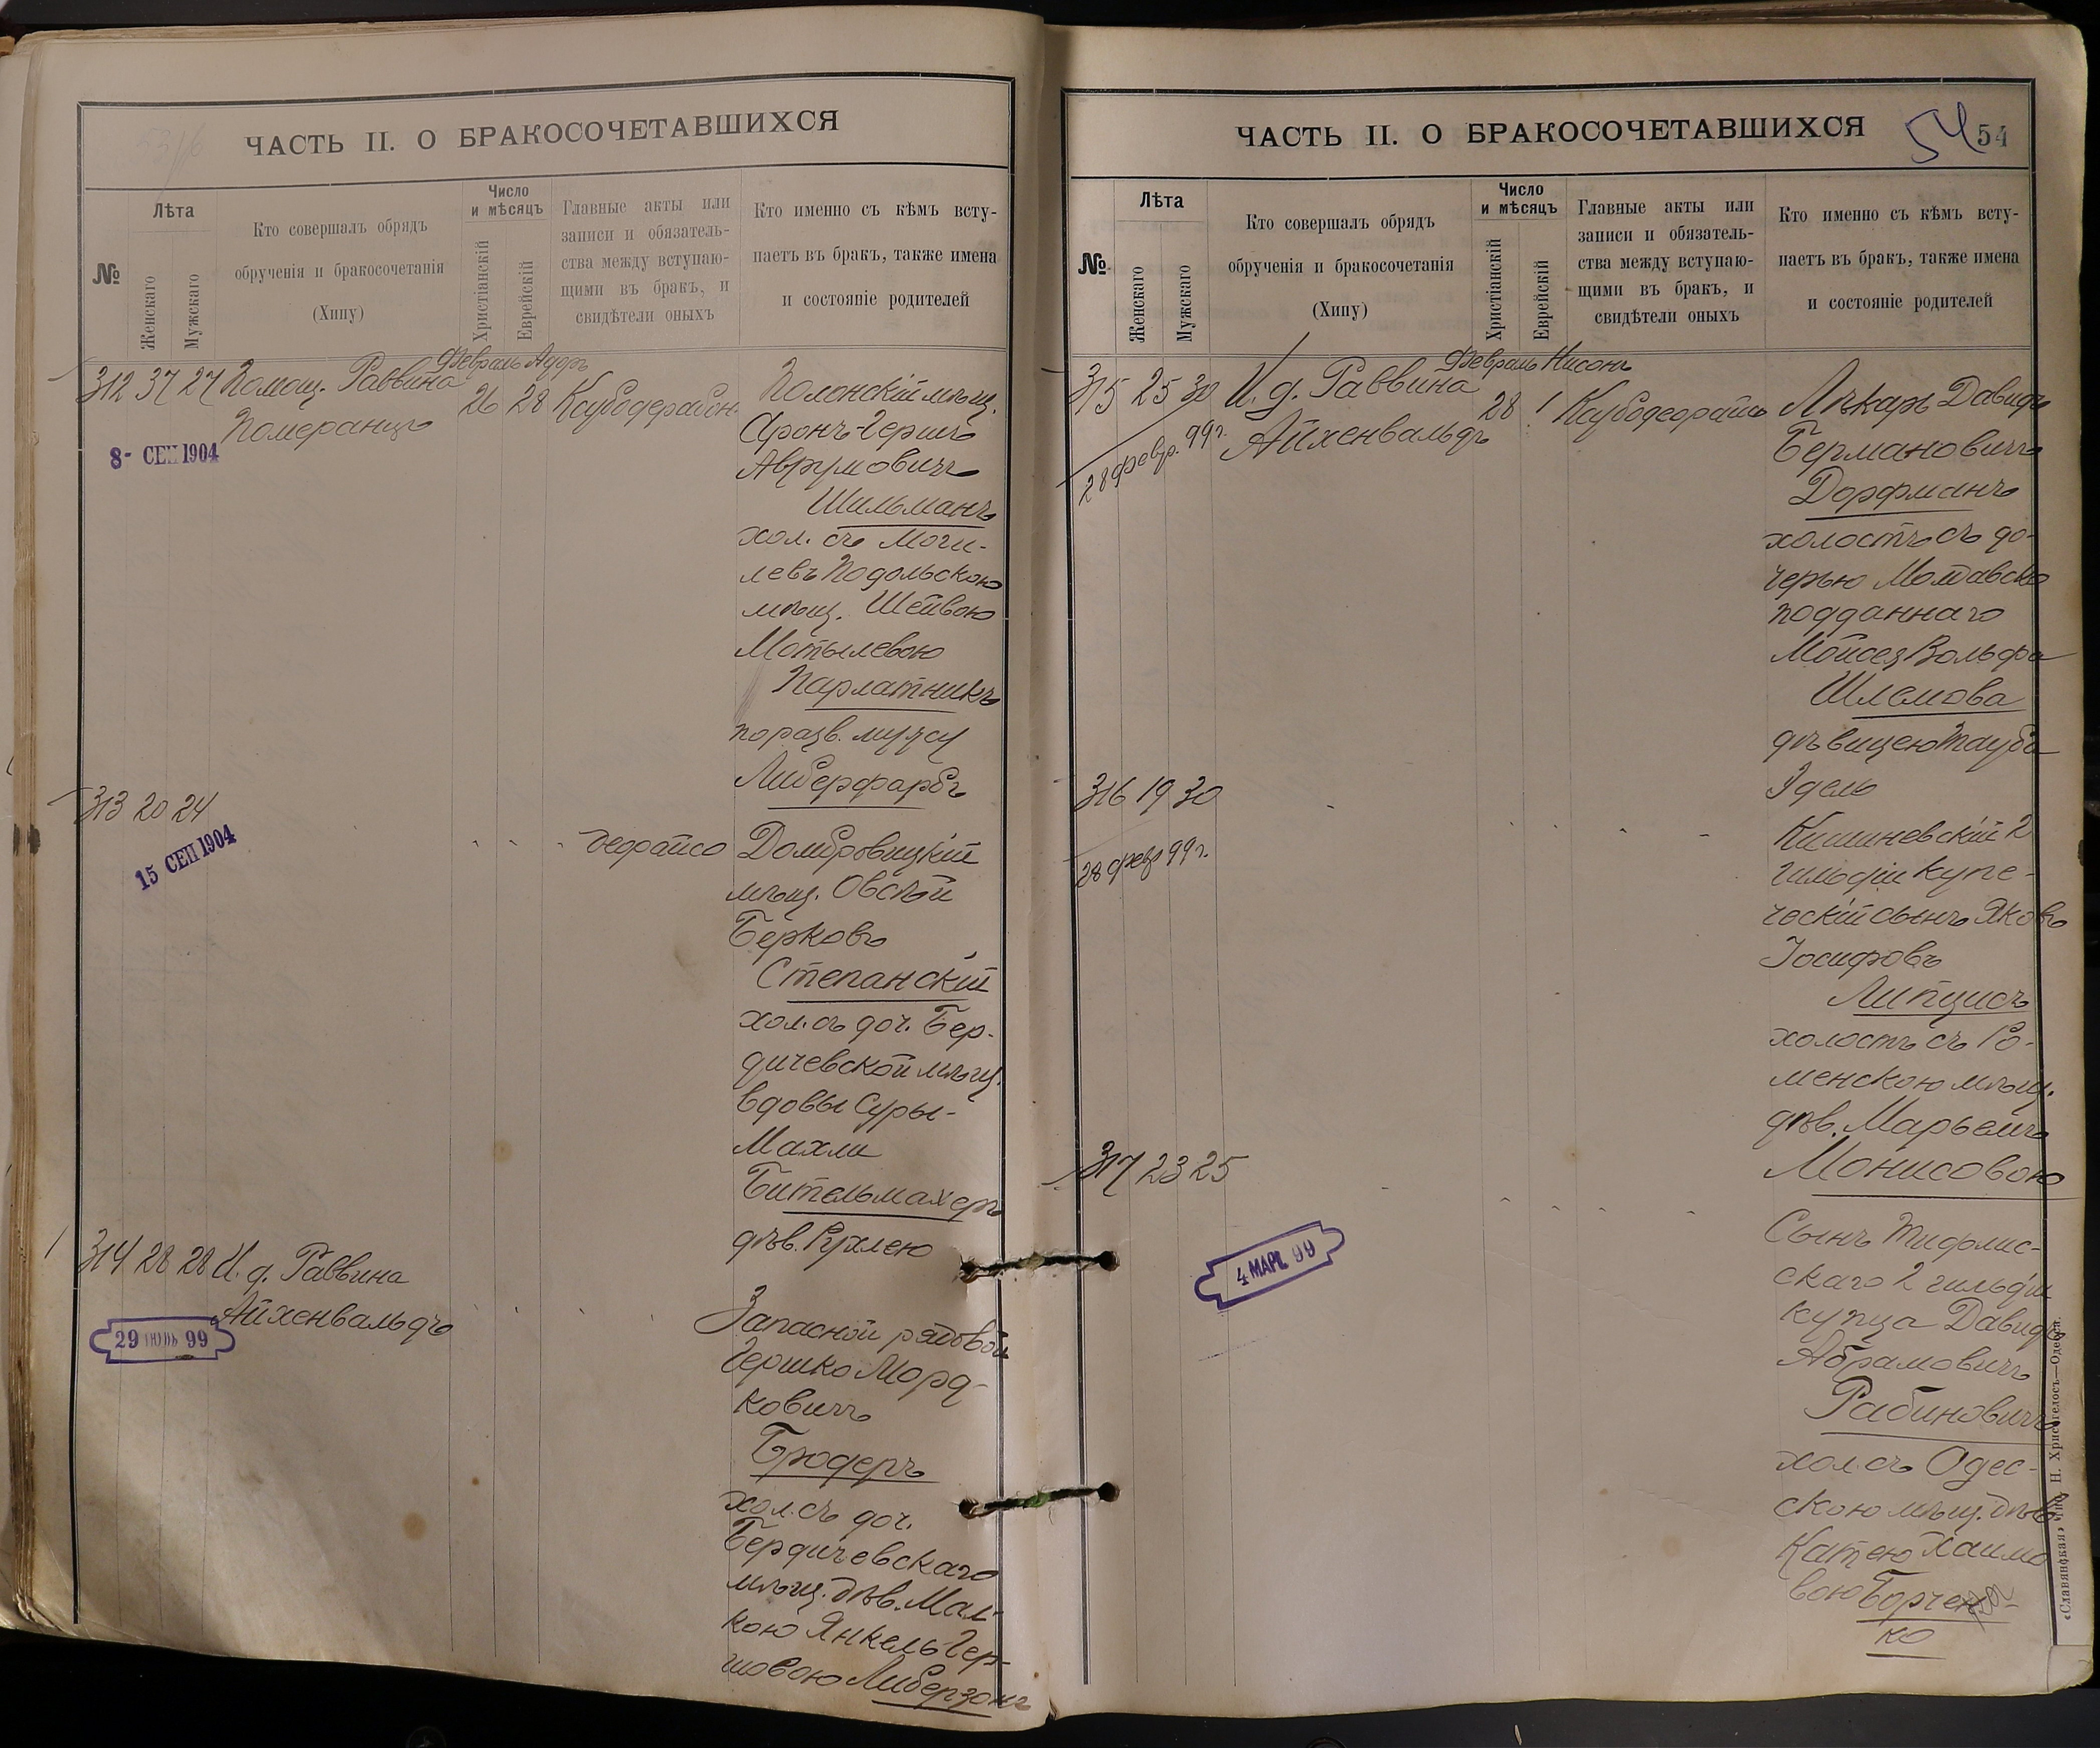 ЧАСТЬ II. О БРАКОСОЧЕТАВШИХСЯ
№
Лѣта
Женскаго
Мужскаго
Кто совершалъ обрядъ
обрученія и бракосочетанія
(Хипу)
Число
и мѣсяцъ
Христіанскій
Еврейскій
Главные акты или
записи и обязатель-
ства между вступаю-
щими въ бракъ, и
свидѣтели оныхъ
Кто именно съ кѣмъ всту-
паетъ въ бракъ, также имена
и состояніе родителей
Февраль Адаръ
312 37 27 Помощ. Раввина 26 28
Померанцъ
8- СЕН 1904
Полонскій мѣщ.
Аронъ-Гершъ
Аврумовичъ
Шильманъ
хол. съ Моги-
левъ Подольскою
мѣщ. Шейвою
Мотылевою
Парлатникъ
по разв. мужу
Либерфарбъ
313 20 24
15 СЕН 1904
Домбровицкій
мѣщ. Овсѣй
Берковъ
Степанскій
хол. съ доч. Бер-
дичевской мѣщ.
вдовы Суры-
Махли
Бительмахеръ
дѣв. Рухлею
314 28 28 И. д. Раввина
Айхенвальдъ
29 ІЮНЬ 99
Запасной рядовой
Гершко Морд-
ковичъ
Бродеръ
хол. съ доч.
Бердичевскаго
мѣщ. дѣв. Мал-
кою Янкель-Гер-
шовою Либерзонъ
ЧАСТЬ II. О БРАКОСОЧЕТАВШИХСЯ
54 54
№
Лѣта
Женскаго
Мужскаго
Кто совершалъ обрядъ
обрученія и бракосочетанія
(Хипу)
Число
и мѣсяцъ
Христіанскій
Еврейскій
Главные акты или
записи и обязатель-
ства между вступаю-
щими въ бракъ, и
свидѣтели оныхъ
Кто именно съ кѣмъ всту-
паетъ въ бракъ, также имена
и состояніе родителей
Февраль Нисонъ
315 25 30 И. д. Раввина 28 1
Айхенвальдъ
28 февр. 99 г.
Лѣкарь Давидъ
Бермановичъ
Дорфманъ
холостъ съ до-
черью Молдавско
подданнаго
Мойсея Вольфа
Шлемова
дѣвицею Тауба
Эдель
316 19 30
28 февр 99 г.
Кишиневскій 2
гильдіи купе-
ческій сынъ Яковъ
Іосифовъ
Липцисъ
холостъ съ Ро-
менскою мѣщ.
дѣв. Марьемъ
Монисовою
317 23 25
4 МАР. 99
Сынъ Тифлис-
скаго 2 гильдіи
купца Давидъ
Абрамовичъ
Рабиновичъ
хол. съ Одес-
скою мѣщ. дѣв.
Катею Хаимо
вою Борчен-
ко
«Славянская» Тип. Н. Хрисогелосъ—Одесса.